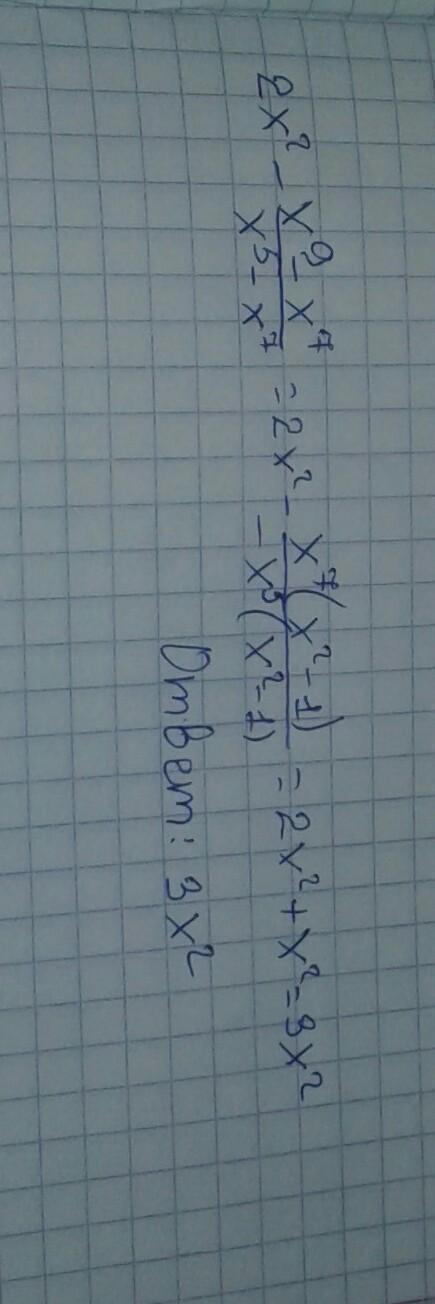 2x² - (x⁹ - x⁷)/(x⁵ - x⁷) = 2x² - (x⁷(x² - 1))/(-x⁵(x² - 1)) = 2x² + x² = 3x²
Ответ: 3x²